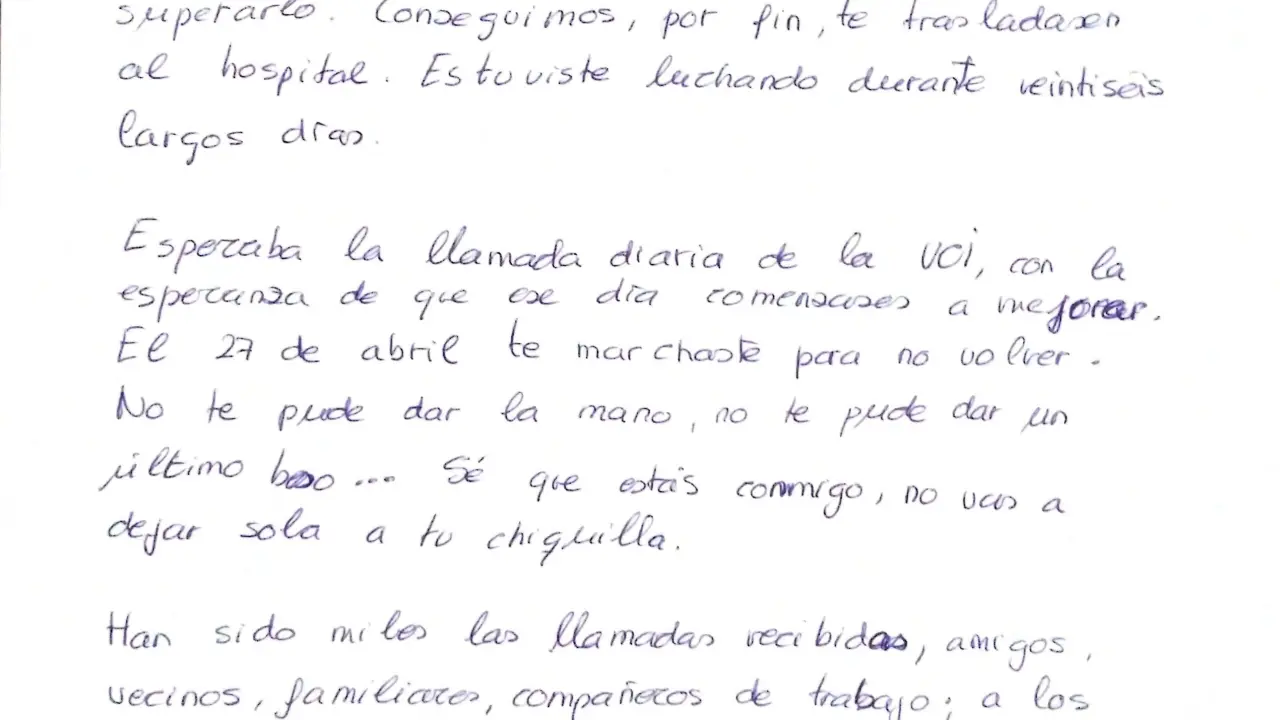 superarlo. Conseguimos, por fin, te trasladasen
al hospital. Estuviste luchando durante veintiséis
largos días.
Esperaba la llamada diaria de la UCI, con la
esperanza de que ese día comenzases a mejorar.
El 27 de abril te marchaste para no volver.
No te pude dar la mano, no te pude dar un
último beso... Sé que estás conmigo, no vas a
dejar sola a tu chiquilla.
Han sido miles las llamadas recibidas, amigos,
vecinos, familiares, compañeros de trabajo; a los